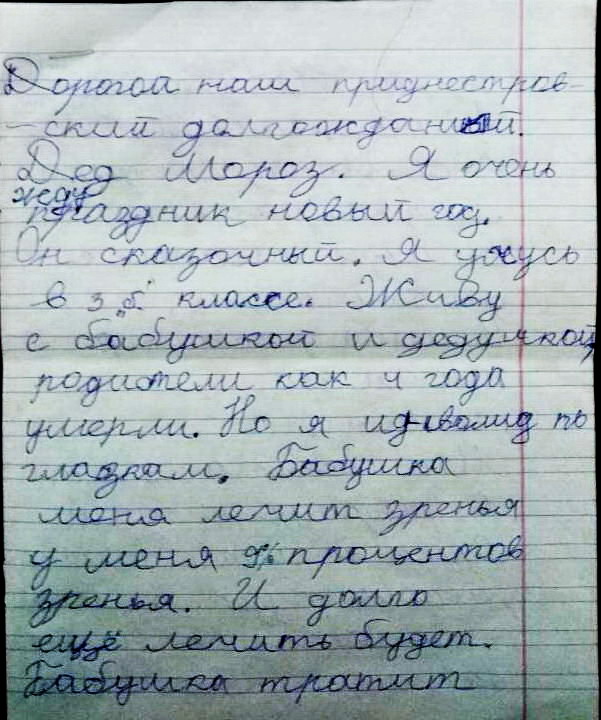 Дорогой наш приднестров-
-ский долгожданный.
Дед Мороз. Я очень
жду
праздник новый год.
Он сказочный. Я учусь
в 3 "б" классе. Живу
с бабушкой и дедушкой,
родители как 4 года
умерли. Но я инвалид по
глазкам. Бабушка
меня лечит зренья
у меня % процентов
зренья. И долго
ещё лечить будет.
Бабушка тратит